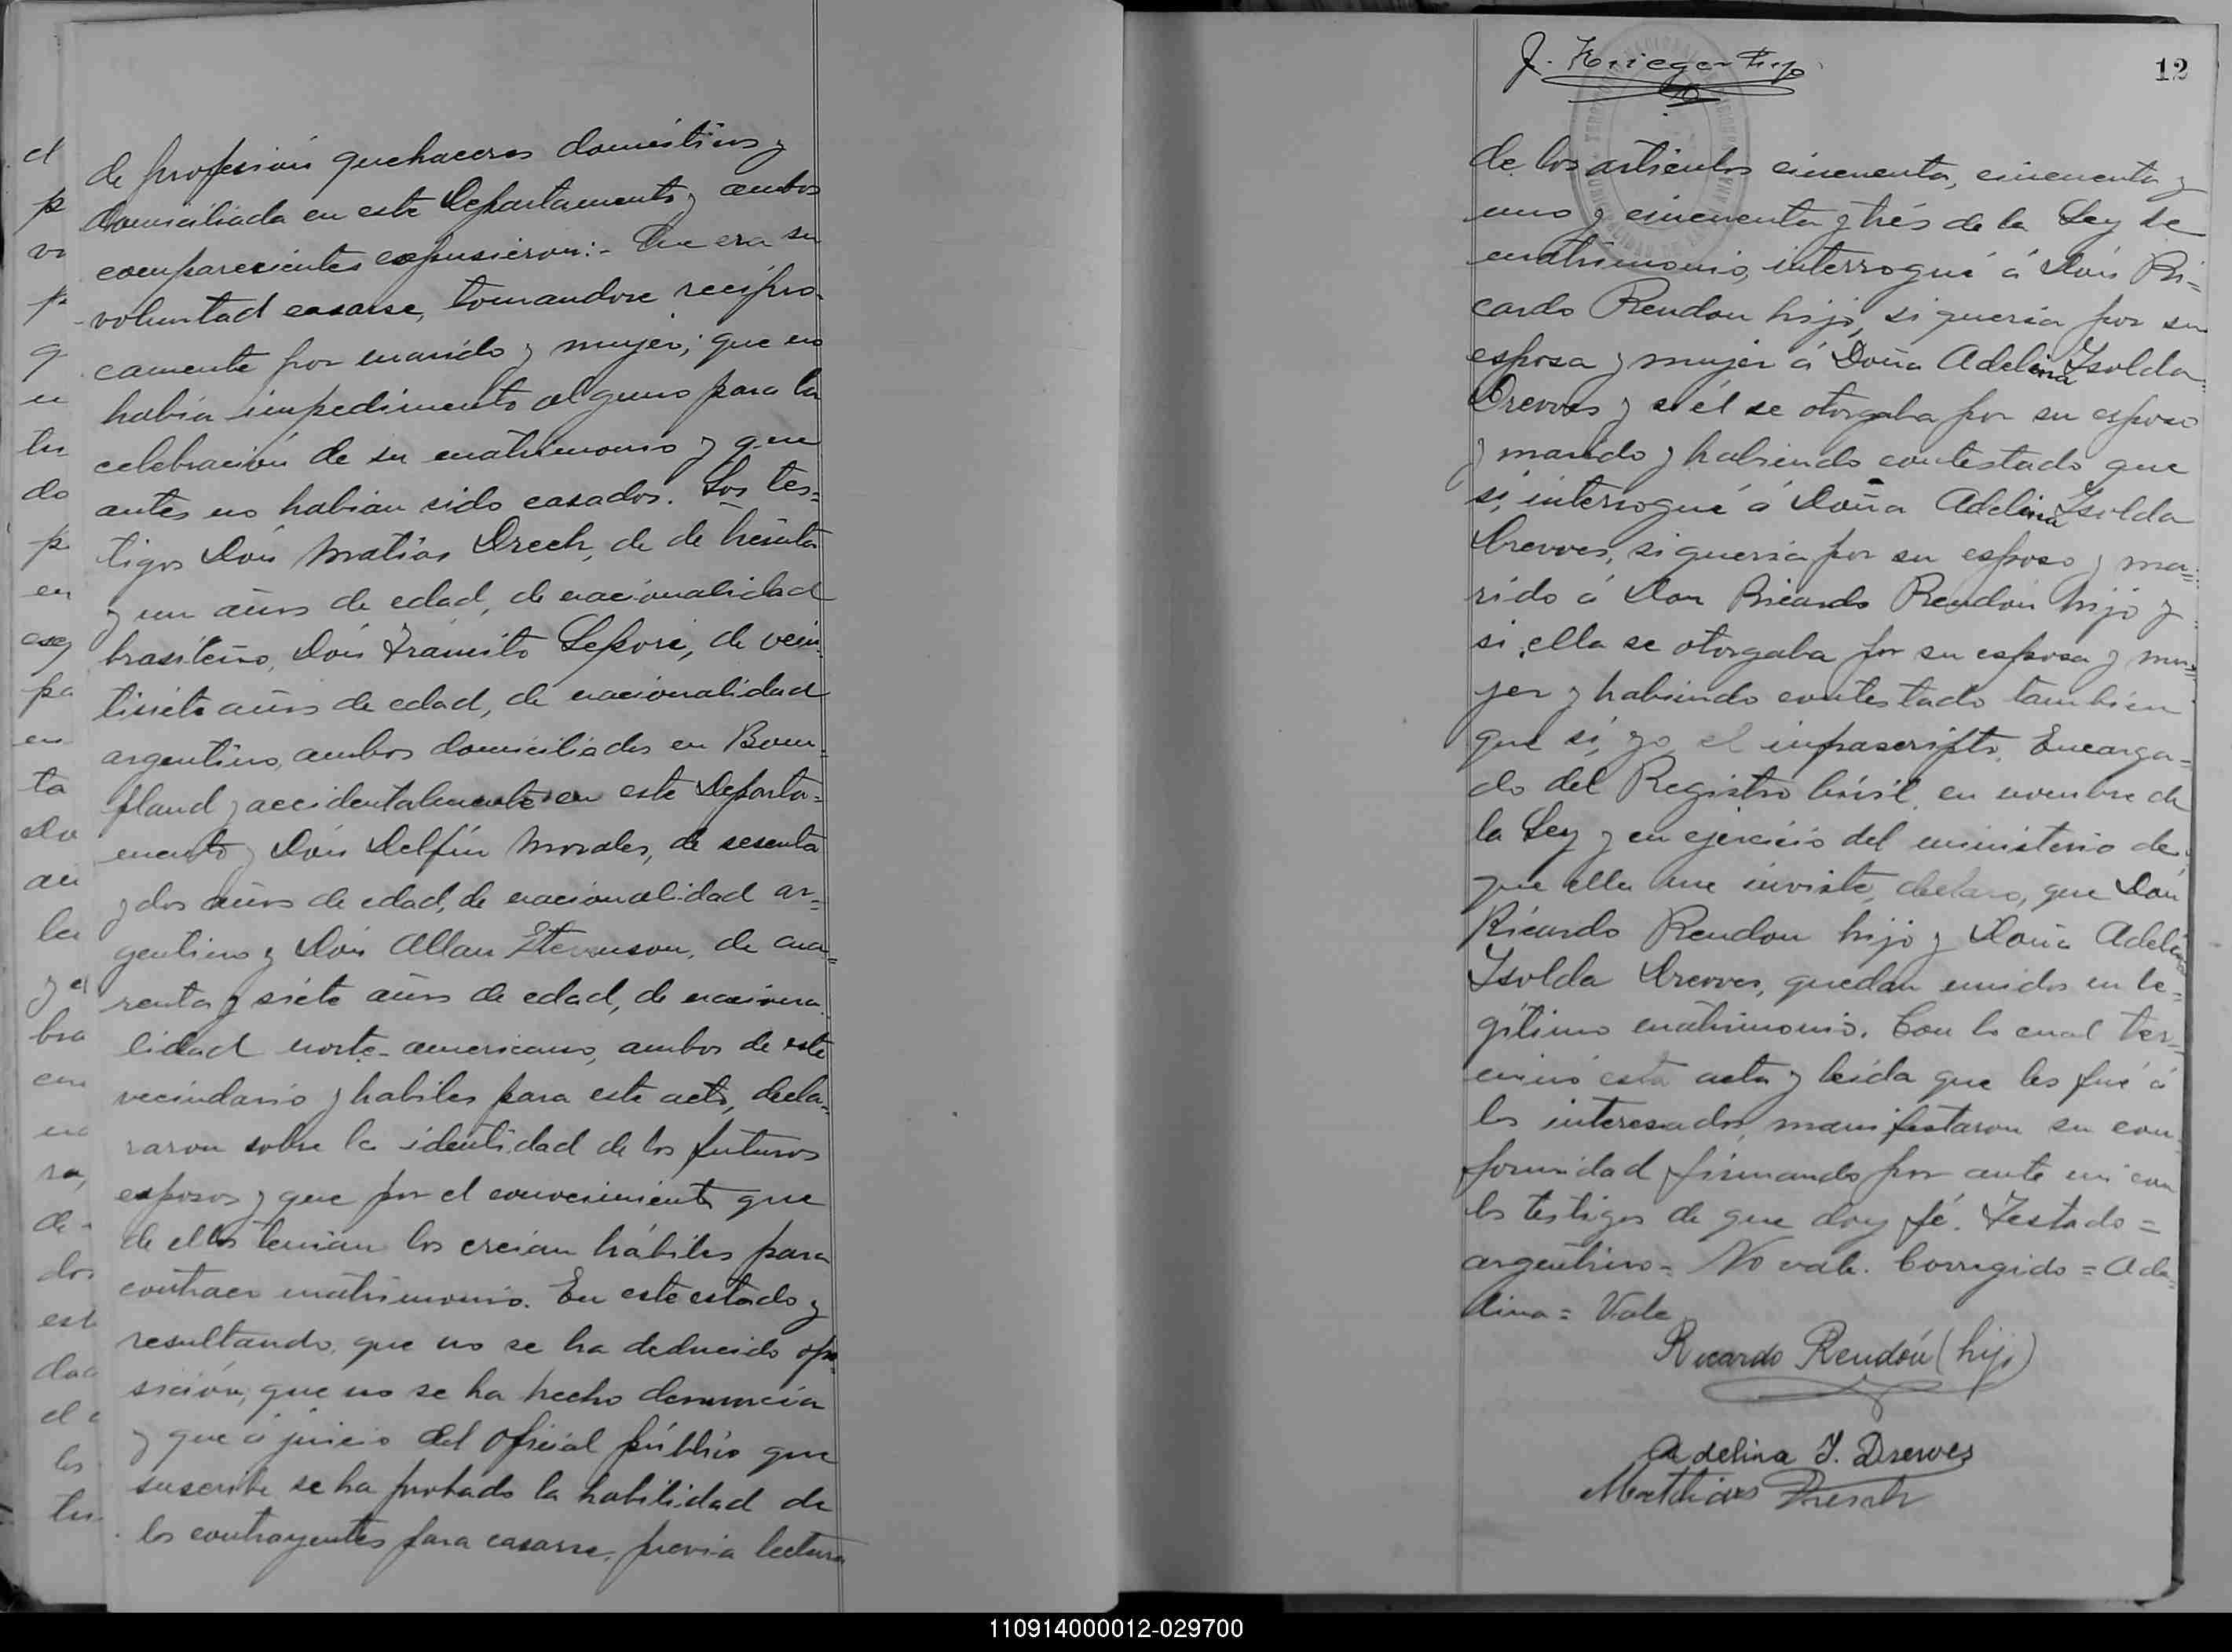 de profesión quehaceres domésticos y
domiciliada en este Departamento y ambos
comparecientes expusieron:- Que era su
voluntad casarse, tomandose recipro-
camente por marido y mujer; que no
había impedimento alguno para la
celebración de su matrimonio y que
antes no habian sido casados. Los tes=
tigos Don Matías Drech, de de treinta
y un años de edad, de nacionalidad
brasileño, Don Tránsito Lepori, de vein-
tisiete años de edad, de nacionalidad
argentino, ambos domiciliados en Bom-
pland y accidentalmente en este Departa=
mento y Don Delfín Morales, de sesenta
y dos años de edad, de nacionalidad ar=
gentino y Don Allan Stevenson, de cua=
renta y siete años de edad, de naciona-
lidad norte-americano, ambos de este
vecindario y habiles para este acto, decla-
raron sobre la identidad de los futuros
esposos y que por el conocimiento que
de ellos tenian los creian hábiles para
contraer matrimonio. En este estado y
resultando, que no se ha deducido opo-
sición, que no se ha hecho denuncia
y que á juicio del oficial público que
suscribe se ha probado la habilidad de
los contrayentes para casarse, previa lectura
J. Krieger hijo
12
de los articulos cincuenta, cincuenta y
uno y cincuenta y trés de la Ley de
matrimonio, interrogué á Don Ri=
cardo Rendon hijo, si queria por su
esposa y mujer á Doña Adelina Isolda
Drewes y si él se otorgaba por su esposo
y marido y habiendo contestado que
sí, interrogué á Doña Adelina Isolda
Drewes, si queria por su esposo y ma=
rido á Don Ricardo Rendón hijo y
si ella se otorgaba por su esposa y mu=
jer y habiendo contestado tambien
que sí, yo, el infrascripto, Encarga=
do del Registro Civil, en nombre de
la Ley y en ejercicio del ministerio de
que ella me inviste, declaro, que Don
Ricardo Rendon hijo y Doña Adelina
Isolda Drewes, quedan unidos en le=
gítimo matrimonio. Con lo cual ter=
minó esta acta y leida que les fué á
los interesados, manifestaron su con-
formidad firmando por ante mi con
los testigos de que doy fé. Testado=
argentino= No vale. Corregido= Ade=
lina= Vale
Ricardo Rendón (hijo)
Adelina I. Drewes
Mathias Dresch
110914000012-029700